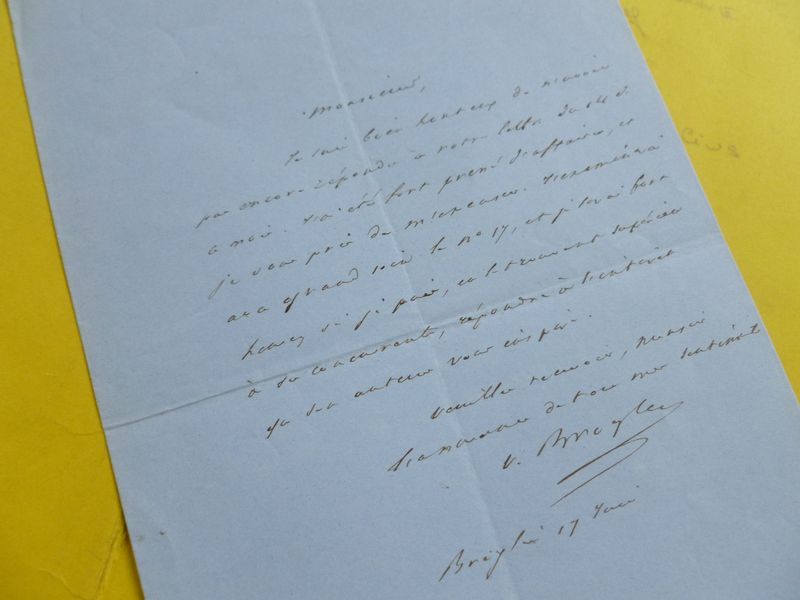 Monsieur,
Je suis bien honteux de n'avoir
pas encore répondu à votre lettre du 14 de
ce mois. J'ai été fort pressé d'affaires, et
je vous prie de m'excuser. J'examinerai
avec grand soin le no 17, et je serai fort
heureux si je puis, en le trouvant supérieur
à ses concurrents, répondre à l'intérêt
que son auteur vous inspire.
Veuillez recevoir, monsieur
l'assurance de tous mes sentiments
V. Broglie
Broglie 17 Juin